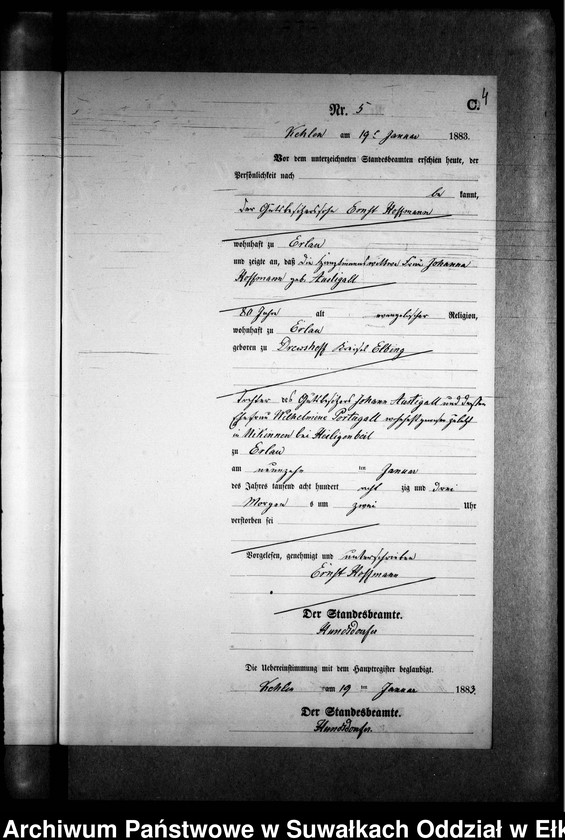 4
Nr. 5
C.
Kehlen am 19t Januar 1883.
Vor dem unterzeichneten Standesbeamten erschien heute, der
Persönlichkeit nach
be kannt,
der Gutsbesitzersohn Ernst Hoffmann
wohnhaft zu Erlau
und zeigte an, daß die Frau Johanna
Hoffmann geb.
80 Jahr alt evangelischer Religion,
wohnhaft zu Erlau
geboren zu Drewshoff Kreises Elbing
Tochter des Gutsbesitzers Johann und dessen
Ehefrau Wilhelmine Portugall wohnhaft gewesen zuletzt
in bei Heiligenbeil
zu Erlau
am neunzehn ten Januar
des Jahres tausend acht hundert acht zig und drei
Morgen s um zwei Uhr
verstorben sei
Vorgelesen, genehmigt und unterschrieben
Ernst Hoffmann
Der Standesbeamte.
Hundsdoerfer
Die Uebereinstimmung mit dem Hauptregister beglaubigt.
Kehlen am 19 ten Januar 1883.
Der Standesbeamte.
Hundsdoerfer.
Archiwum Państwowe w Suwałkach Oddział w Ełk